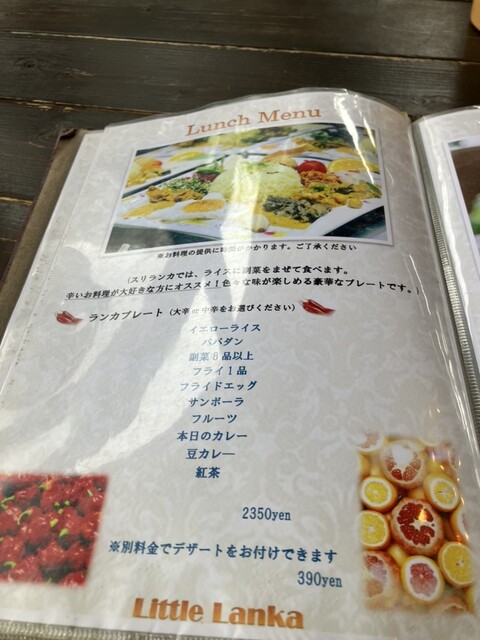 Lunch Menu
※お料理の提供に時間がかかります。ご了承ください
(スリランカでは、ライスに副菜をまぜて食べます。
辛いお料理が大好きな方にオススメ！色々な味が楽しめる豪華なプレートです。)
ランカプレート (大辛or中辛をお選びください)
イエローライス
パパダン
副菜８品以上
フライ１品
フライドエッグ
サンボーラ
フルーツ
本日のカレー
豆カレー
紅茶
2350yen
※別料金でデザートをお付けできます
390yen
Little Lanka